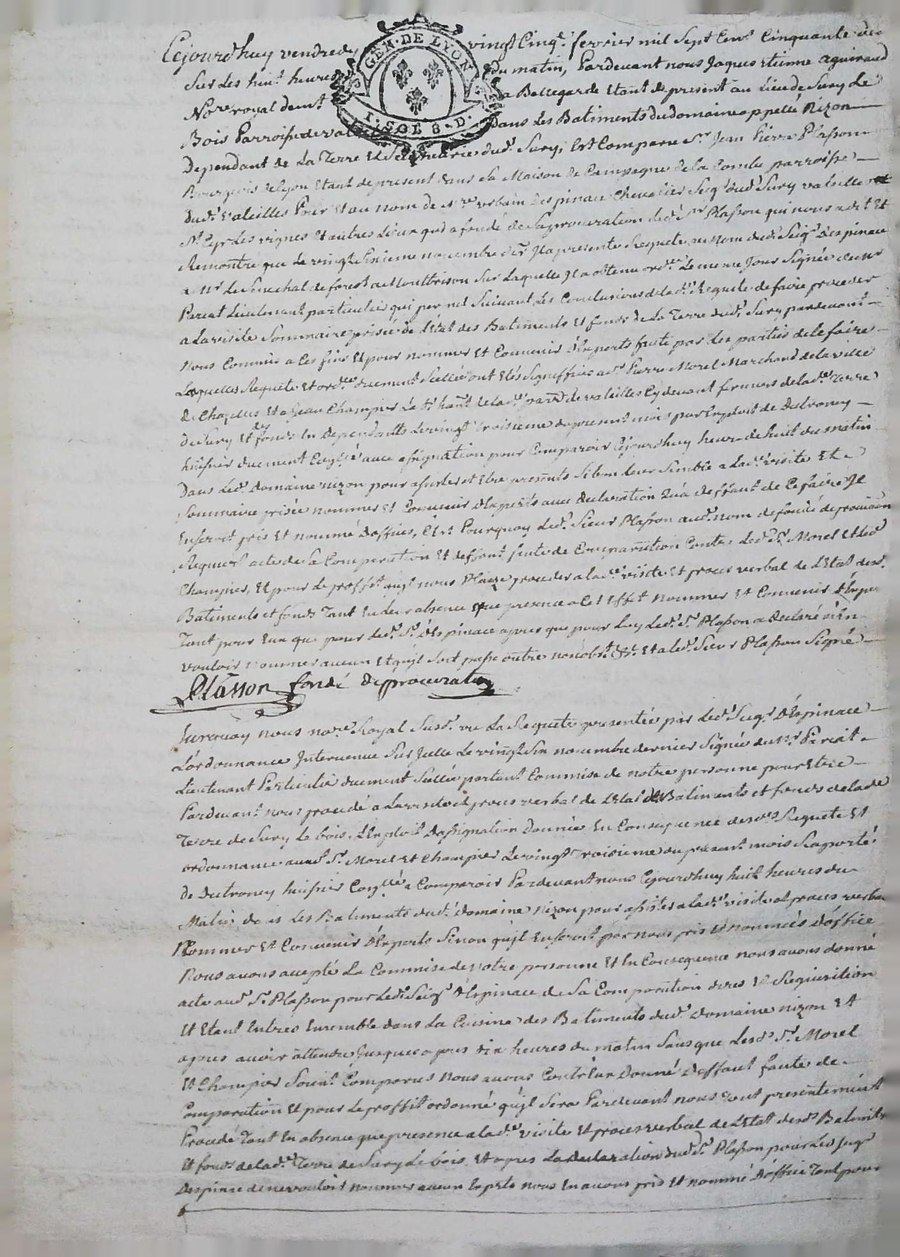 Cejourdhuy vendredy vingt Cinq.e fevrier mil Sept Cens Cinquante
GEN. DE LYON
1. SOL 8. D.
Sur les huit heures du matin, Pardevant nous Jaques Etienne
No.re royal de a Bellegarde Etant de present au lieu de Sury Le
Bois Parroisse de Dans les Batiments du domaine appellé Nizon
Dependant de La Terre Et Seigneurie dud. Sury, Est Comparu S.r Jean Plasson
Bourgeois de Lyon Etant de present dans sa Maison de Campagne de la Combe parroisse
dud. valeilles Pour Et au nom de urbain Despinac Chevalier Seig.r dud. Sury valeille
S.t Cyr Les vignes Et autres Lieux fondé de Sa procuration led. S.r Plasson qui nous a dit Et
Remontré que le vingt Sixieme novembre d.er Il a presenté Requete au Nom dud. Seig.r Despinace
a M.r le Senechal de forest a Montbrison Sur Laquelle Il a obtenu ord.ce Le meme Jour Signée
Periat Lieutenant particulier qui permet Suivant Les Conclusions de lad. Requete de faire proceder
a La visite Sommaire prisée de l'Etat des Batiments Et fonds de La Terre dud. Sury pardevant
nous Commis a Ces fins Et pour nommer Et Convenir d'Experts faute par les parties de le faire
Lesquelles Requete Et ord.ce duement Scellée ont Eté Signiffiées a S.r Pierre Morel Marchand de la ville
de Chazelles Et a Jean Champier de lad. parr.se de valeilles Cy devant fermiers de lad. Terre
de Sury Et fonds En Dependants Le vingt troisieme du present mois par Exploit de Dutroncy
huissier duement avec assignation pour Comparoir Cejourdhuy heure de huit du matin
Dans led. Domaine nizon pour assister et Etre presents Si bon leur Semble a lad. visite Et
Sommaire prisée nommer Et Convenir d'Experts avec declaration qu'a deffaut de Ce faire Il
En Seroit pris Et nommé d'office, C'est Pourquoy led. Sieur Plasson aud. nom de fondé de procuration
Requiert acte de Sa Comparution Et deffaut faute de Comparution Contre led. S.r Morel Et led.
Champier, Et pour le proffit qu'il nous Plaize proceder a lad. visite Et proces verbal de l'Etat desd.
Batiments et fonds Tant En leur absence que presence a Cet Effet nommer Et Convenir d'Experts
Tant pour Eux que pour led. S.r d'Espinace apres que pour Luy led. S.r Plasson a Declaré n'En
vouloir nommer aucun Et qu'il Soit passé outre Et a led. Sieur Plasson Signé
Plasson fondé de procuration
Surquoy nous no.re Royal Sus.d vu La Requete presentée par led. Seig.r d'Espinace
L'ordonnance Intervenue Sur Icelle Le vingt Six novembre dernier Signée du S.r Periat
Lieutenant Particulier duement Scellée portant Commise de notre personne pour Etre
Pardevant nous procedé a La visite et proces verbal de l'Etat des Batiments et fonds de lad.
Terre de Sury Le bois, L'Exploit d'assignation Donnée En Consequence desd. Requete Et
ordonnance auxd. S.r Morel Et Champier Le vingt troisieme du present mois
de Dutroncy huissier a Comparoir Pardevant nous Cejourdhuy huit heures du
Matin dans Les Batiments dud. domaine nizon pour assister a lad. visite et proces verbal
Nommer Et Convenir d'Experts Sinon qu'il En Seroit par nous pris Et nommés d'office
Nous avons accepté La Commise de notre personne Et En Consequence nous avons donné
acte aud. S.r Plasson pour led. Seig.r d'Espinace de Sa Comparution dires Et Requisition
Et Etant Entrés Ensemble dans La Cuisine des Batiments dud. domaine nizon Et
apres avoir attendu Jusques a dix heures du matin Sans que Lesd. S.r Morel
Et Champier Soient Comparus Nous avons Contr'Eux Donné Deffaut faute de
Comparution Et pour le proffit ordonné qu'il Sera Pardevant nous Tout presentement
Procedé Tant En absence que presence a lad. visite Et proces verbal de l'Etat desd. Batiments
Et fonds de lad. Terre de Sury Le bois, Et apres La declaration dud. S.r Plasson pour Led. Seig.r
Despinace de ne vouloir nommer aucun Experts nous En avons pris Et nommé d'office Tant pour